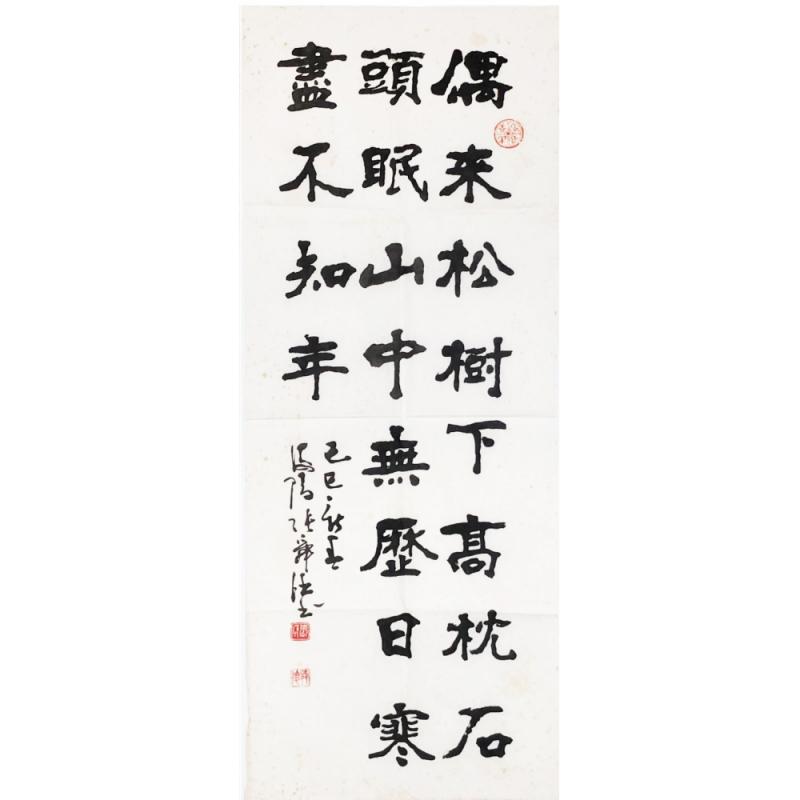 偶来松樹下高枕石
頭眠山中無歷日寒
盡不知年
己巳新春